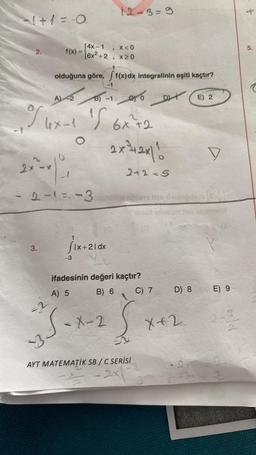 -1+1=-0
12-3=9
2. f(x) = { 4x-1 , x<0
6x²+2 , x≥0
olduğuna göre, ∫ f(x)dx integralinin eşiti kaçtır?
1
-1
A) -2 B) -1 C) 0 D) 1 E) 2
5.
∫ 4x-1 ∫ 6x²+2
0
-1
1
0
2x³+2x | 1 0
2x²-x | 0 -1
2+2=5
-2-1=-3
3. ∫ |x+2| dx
1
-3
ifadesinin değeri kaçtır?
A) 5 B) 6 C) 7 D) 8 E) 9
-2
-3 ∫ -x-2 ∫ x+2
-2
AYT MATEMATİK SB / C SERİSİ